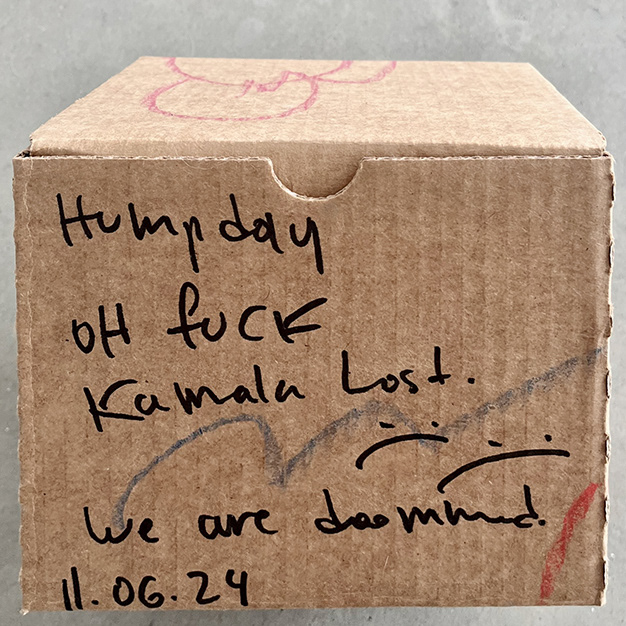 Humpday
OH fuck
Kamala Lost.
We are doommed.
11.06.24